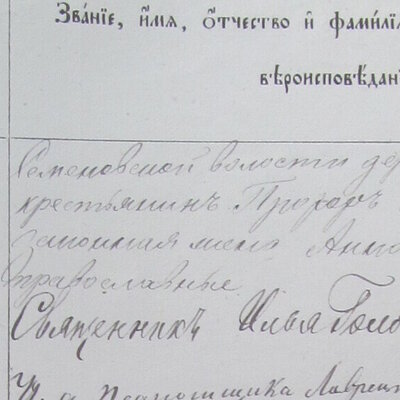 Званїе, имя, отчество и фамилї
вѣроисповѣданї
Семеновской волости дер
крестьянинъ Прохоръ
законная жена Анна
православные
Священникъ Илья Голо
И. д. Псаломщика Лаврен